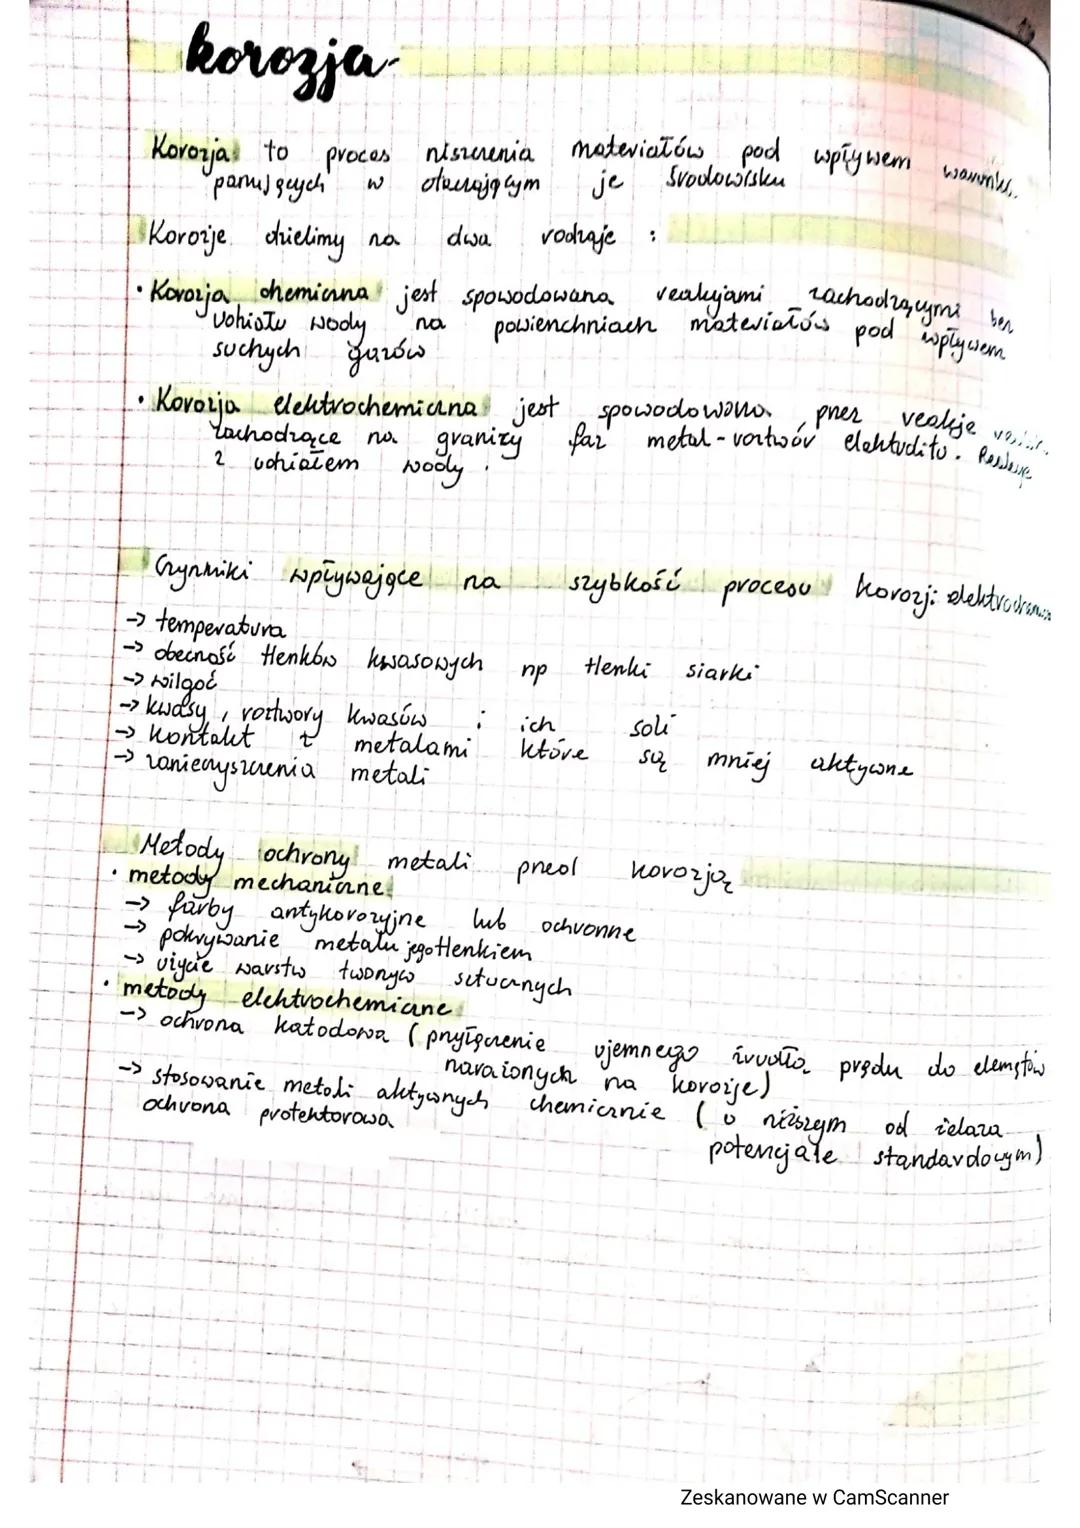 korozja
Korozja to proces niszczenia materiałów pod wpływem
panujących w otaczającym je środowisku
Korozje dzielimy na dwa rodzaje :
• Korozja chemiczna jest spowodowana reakcjami zachodzącymi bez
udziału wody na powierzchniach materiałów pod wpływem
suchych gazów
• Korozja elektrochemiczna jest spowodowana przez reakcje
zachodzące na granicy faz metal - roztwór elektrolitu.
z udziałem wody.
Czynniki wpływające na szybkość procesu korozji
-> temperatura
-> obecność tlenków kwasowych np tlenki siarki
-> wilgoć
-> kwasy, roztwory kwasów i ich soli
-> kontakt z metalami które są mniej aktywne
-> zanieczyszczenia metali
Metody ochrony metali przed korozją
• metody mechaniczne
-> farby antykorozyjne lub ochronne
-> pokrywanie metalu jego tlenkiem
-> użycie warstw tworzyw sztucznych
• metody elektrochemiczne
-> ochrona katodowa (przyłączenie ujemnego źródła prądu do elemętów
narażonych na korozje)
-> stosowanie metali aktywnych chemicznie (o niższym od żelaza
ochrona protektorowa potencjale standardowym)
Zeskanowane w CamScanner